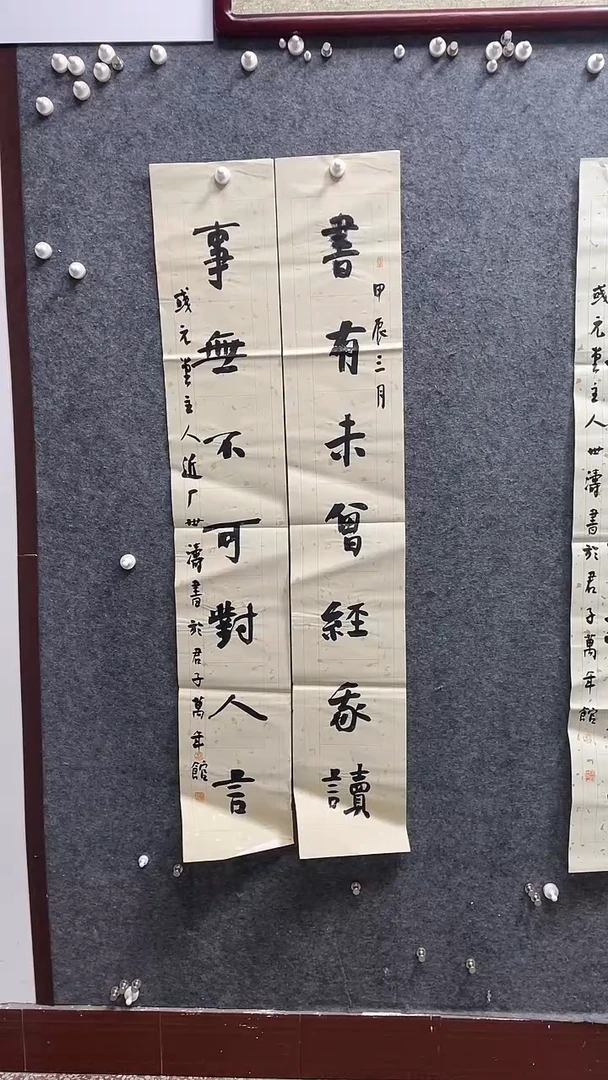 書有未曾經我讀
甲辰三月
事無不可對人言
彧元堂主人近厂世濤書於君子萬年館
彧元堂主人世濤書於君子萬年館